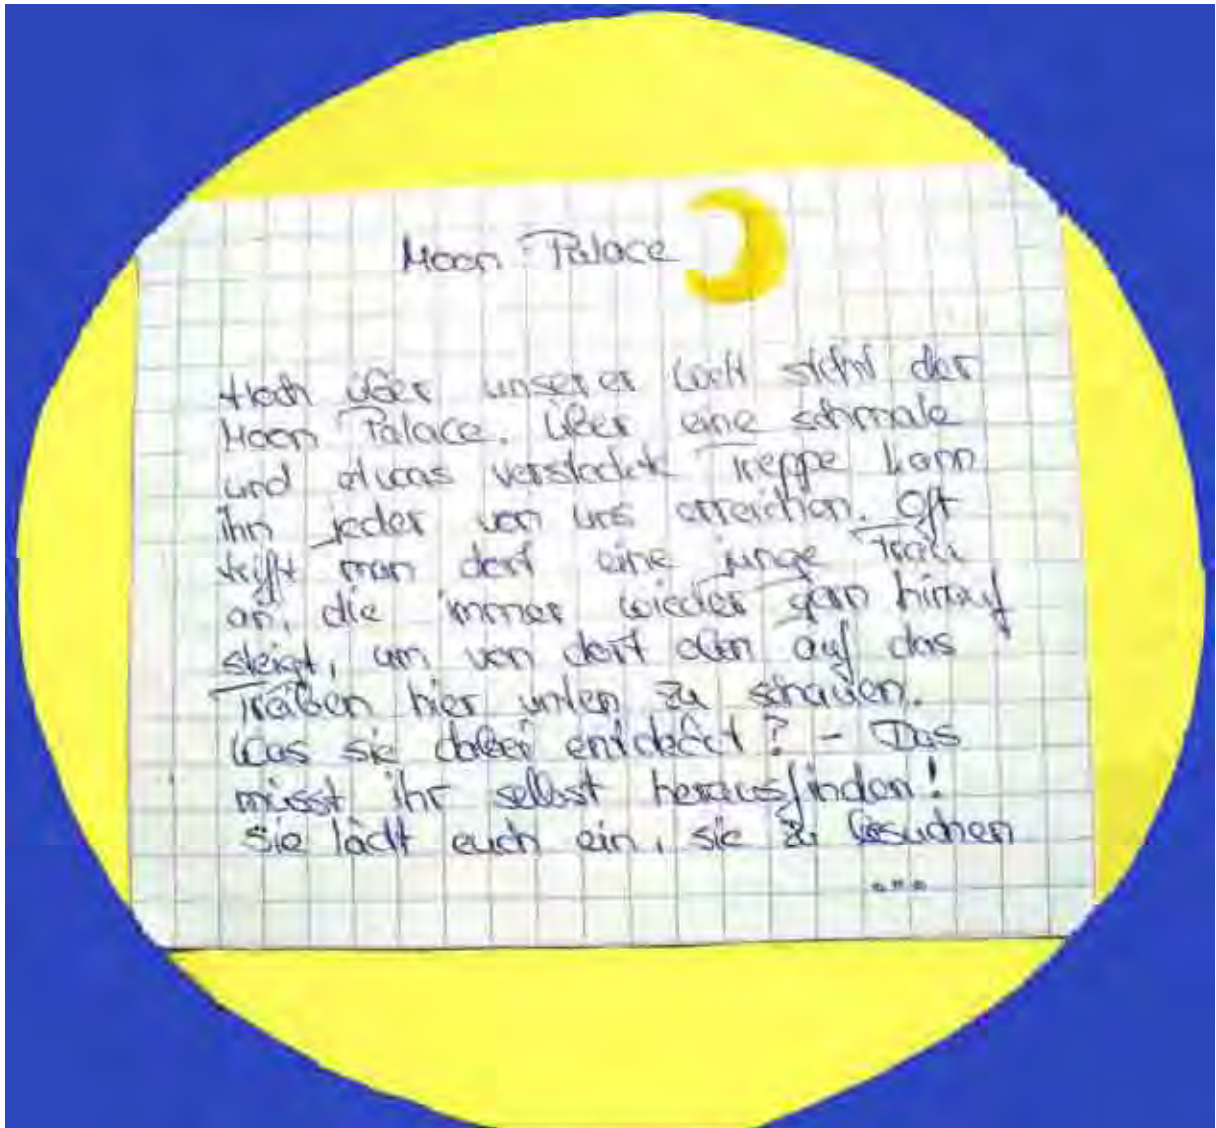 Moon Palace
Hoch über unserer Welt steht der
Moon Palace. Über eine schmale
und etwas versteckte Treppe kann
ihn jeder von uns erreichen. Oft
trifft man dort eine junge Frau
an, die immer wieder gern hinauf
steigt, um von dort oben auf das
Treiben hier unten zu schauen.
Was sie dabei entdeckt? - Das
müsst ihr selbst herausfinden!
Sie lädt euch ein, sie zu besuchen
...